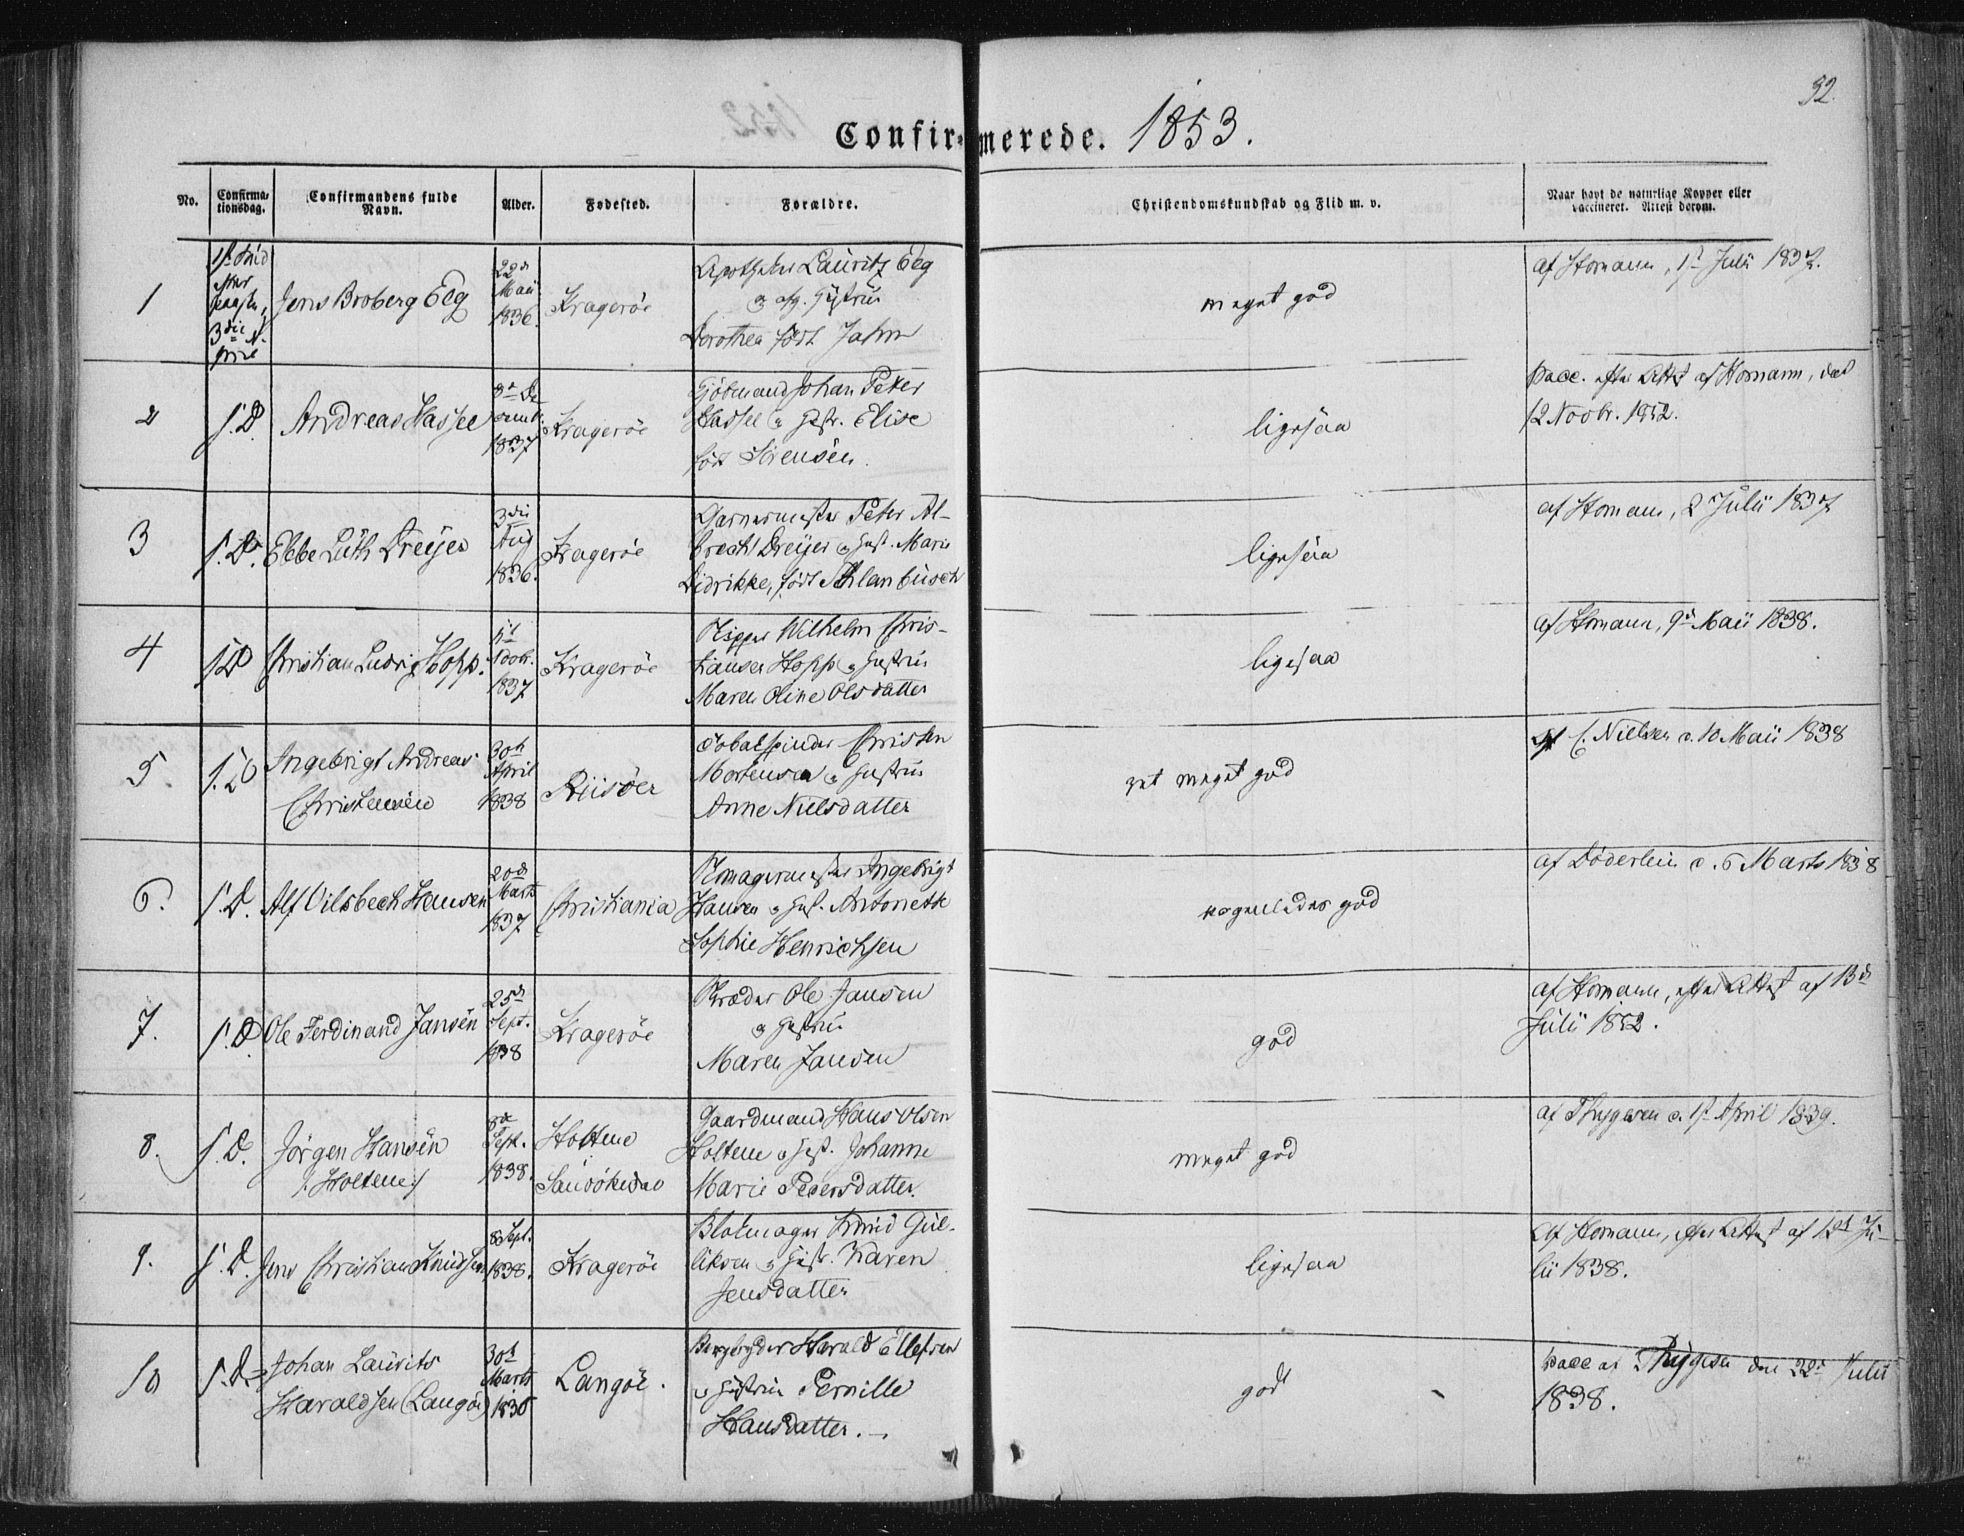 92.
Confirmerede. 1853.
No.
Confirma-
tionsdag.
Confirmandens fulde
Navn.
Alder.
Fødested.
Forældre.
Christendomskundskab og Flid m. v.
Naar havt de naturlige Kopper eller
vaccineret. Attest derom.
1
Jens Broberg Eeg
22de
Maii
1836.
Kragerøe
Apotheker Lauritz Eeg
Hustrue
Dorothea født Jahn
meget god
af Homann, 1st Julii 1837.
2
S. D.
Andreas Hassel
1837
Kragerøe
Johan Peter
Hassel og Hustr. Elise
født Sørensen.
ligesaa
vacc. efter Attest af Homann, dat
12 Novbr. 1852.
3
S. D.
Ebbe Lüth Dreyer
3die
Aug
1836.
Kragerøe
Garvermester Peter Al-
brecht Dreyer og Hust. Marie
Didrikke, født Schlanbusch
ligesaa
af Homann, 2 Julii 1837
4
S D
Christian Ludvig Hopp.
Novbr.
1837
Kragerøe
Skipper Wilhelm Chris-
tiansen Hopp og Hustrue
Maren Oline Olsdatter
ligesaa
af Homann, 9de Maii 1838.
5.
S. D
Ingebrigt Andreas
Christensen
30te
April
1838
Riisøer
Tobakspinder Christen
Mortensen og Hustrue
Anne Nielsdatter
meget god
af C. Nielsen d. 10 Maii 1838
6.
S. D.
Alf Vilsbech Hansen
20de
Marts
1837
Christiania
Skomagermester Ingebrigt
Hansen og Hust. Antonette
Sophie Henrichsen
nogenledes god
af Døderlein d. 6 Marts 1838
7.
S. D.
Ole Ferdinand Jansen
25de
Sept.
1838
Kragerøe
Skræder Ole Jansen
og Hustrue
Maren Jansen
god
af Homann, efter Attest af 13de
Julii 1852.
8.
S. D.
Jørgen Hansen
/: Holtene :/
8de
Sept.
1838.
Holtene
Sannøkedal
Gaardmand Hans Olsen
Holtene og Hust. Johanne
Marie Pedersdatter.
meget god
af Thygesen d. 1st April 1839.
9.
S. D.
Jens Christian Knudsen
8 Sept.
1838.
Kragerøe
Blokmager Knud Gul-
liksen og Hustr. Karen
Jensdatter
ligesaa
af Homann, efter Attest af 13de Ju-
lii 1838.
10
S. D.
Johan Laurits
Haraldsen (Langøe)
30te
Marts
Langøe.
Harald Ellefsen
og Hustrue Pernille
Hansdatter.
godt
vacc af Thygesen den 22de Julii
1838.